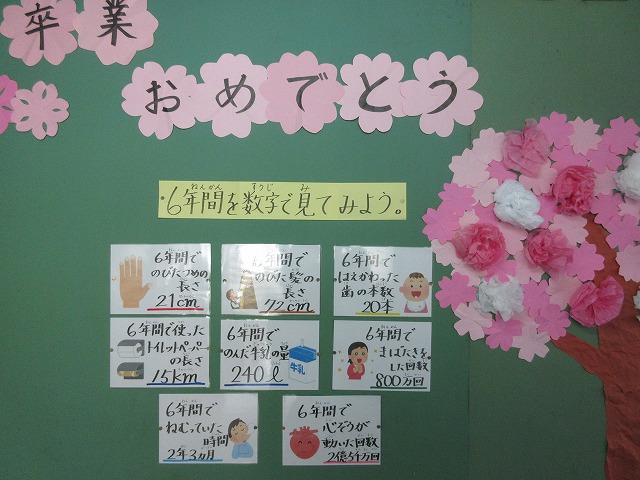 卒業
おめでとう
6年間を数字で見てみよう。
6年間で
のびたつめの
長さ
21cm
6年間で
のびた髪の
長さ
72cm
6年間で
はえかわった
歯の本数
20本
6年間で使った
トイレットペーパー
の長さ
15km
6年間で
のんだ牛乳の量
240ℓ
牛乳
6年間で
まばたきを
した回数
800万回
6年間で
ねむっていた
時間
2年3ヵ月
6年間で
心ぞうが
動いた回数
2億5千万回